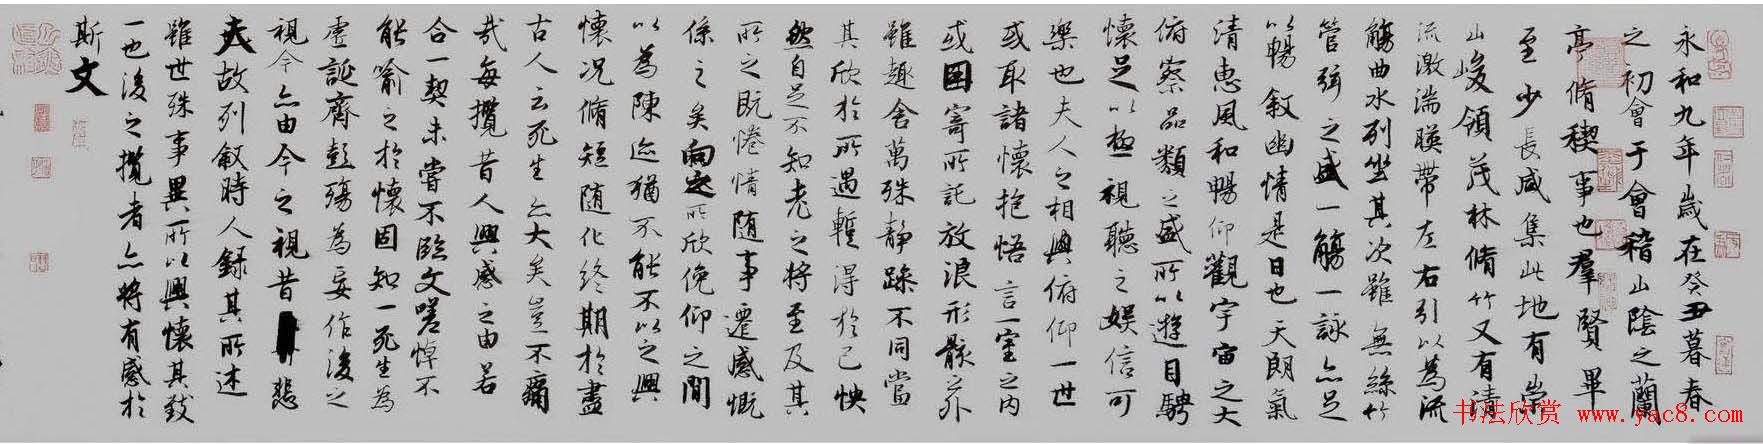 永和九年歲在癸丑暮春
之初會于會稽山陰之蘭
亭脩稧事也羣賢畢
至少長咸集此地有崇
山峻領茂林脩竹又有清
流激湍暎帶左右引以為流
觴曲水列坐其次雖無絲竹
管弦之盛一觴一詠亦足
以暢叙幽情是日也天朗氣
清惠風和暢仰觀宇宙之大
俯察品類之盛所以遊目騁
懷足以極視聽之娛信可
樂也夫人之相與俯仰一世
或取諸懷抱悟言一室之內
或因寄所託放浪形骸之外
雖趣舍萬殊静躁不同當
其欣於所遇蹔得於己怏
然自足不知老之將至及其
所之既惓情隨事遷感慨
係之矣向之所欣俛仰之間
以為陳迹猶不能不以之興
懷况脩短隨化終期於盡
古人云死生亦大矣豈不痛
哉每攬昔人興感之由若
合一契未嘗不臨文嗟悼不
能喻之於懷固知一死生為
虛誕齊彭殤為妄作後之
視今亦由今之視昔悲
夫故列叙時人録其所述
雖世殊事異所以興懷其致
一也後之攬者亦將有感於
斯文
书法欣赏 www.yac8.com